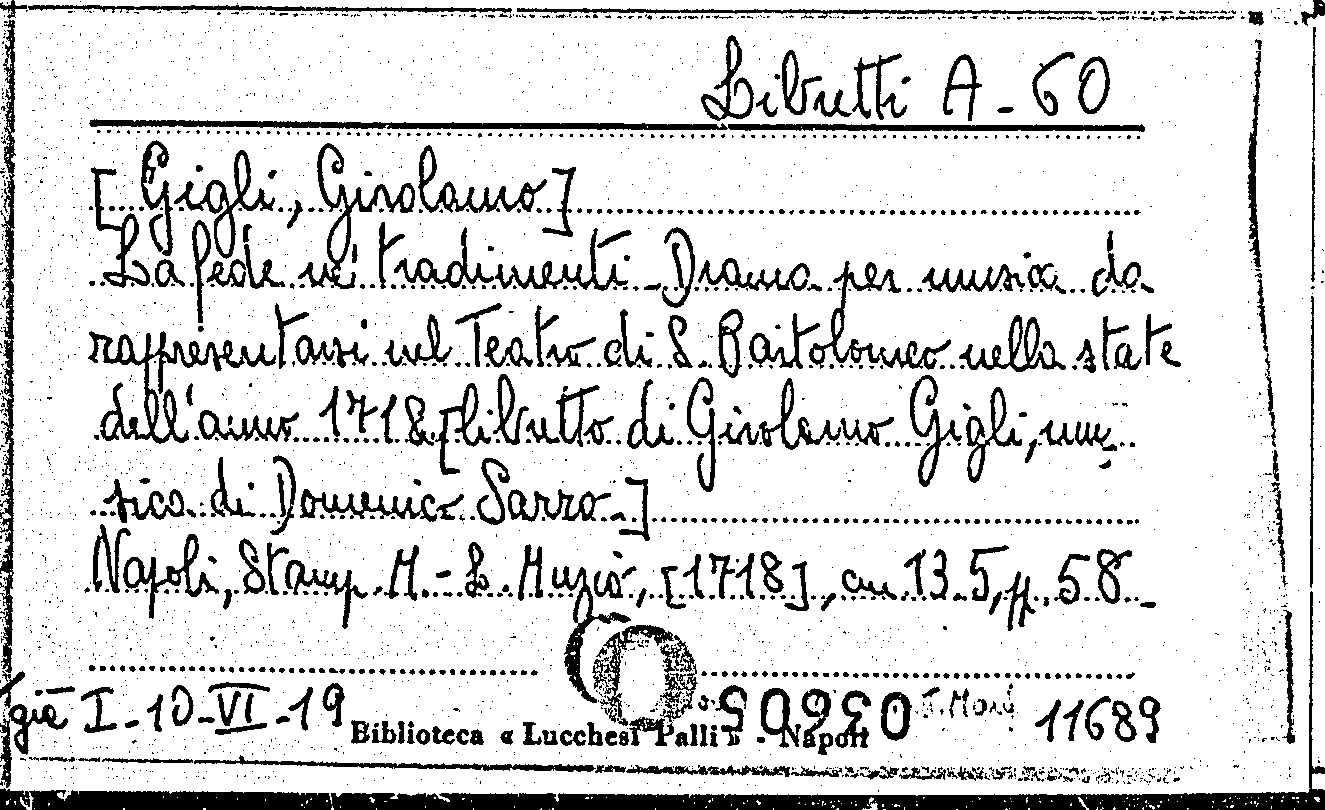 Libretti A-60
[Gigli, Girolamo]
La fede ne' tradimenti - Drama per musica da
rappresentarsi nel Teatro di S. Bartolomeo nella state
dell'anno 1718 [libretto di Girolamo Gigli, mu-
sica di Domenico Sarro-]
Napoli, Stamp. M.-L. Muzio, [1718], cm 13.5, pp. 58-
già I-10-VI-19
Biblioteca « Lucchesi Palli » - Napoli
11689